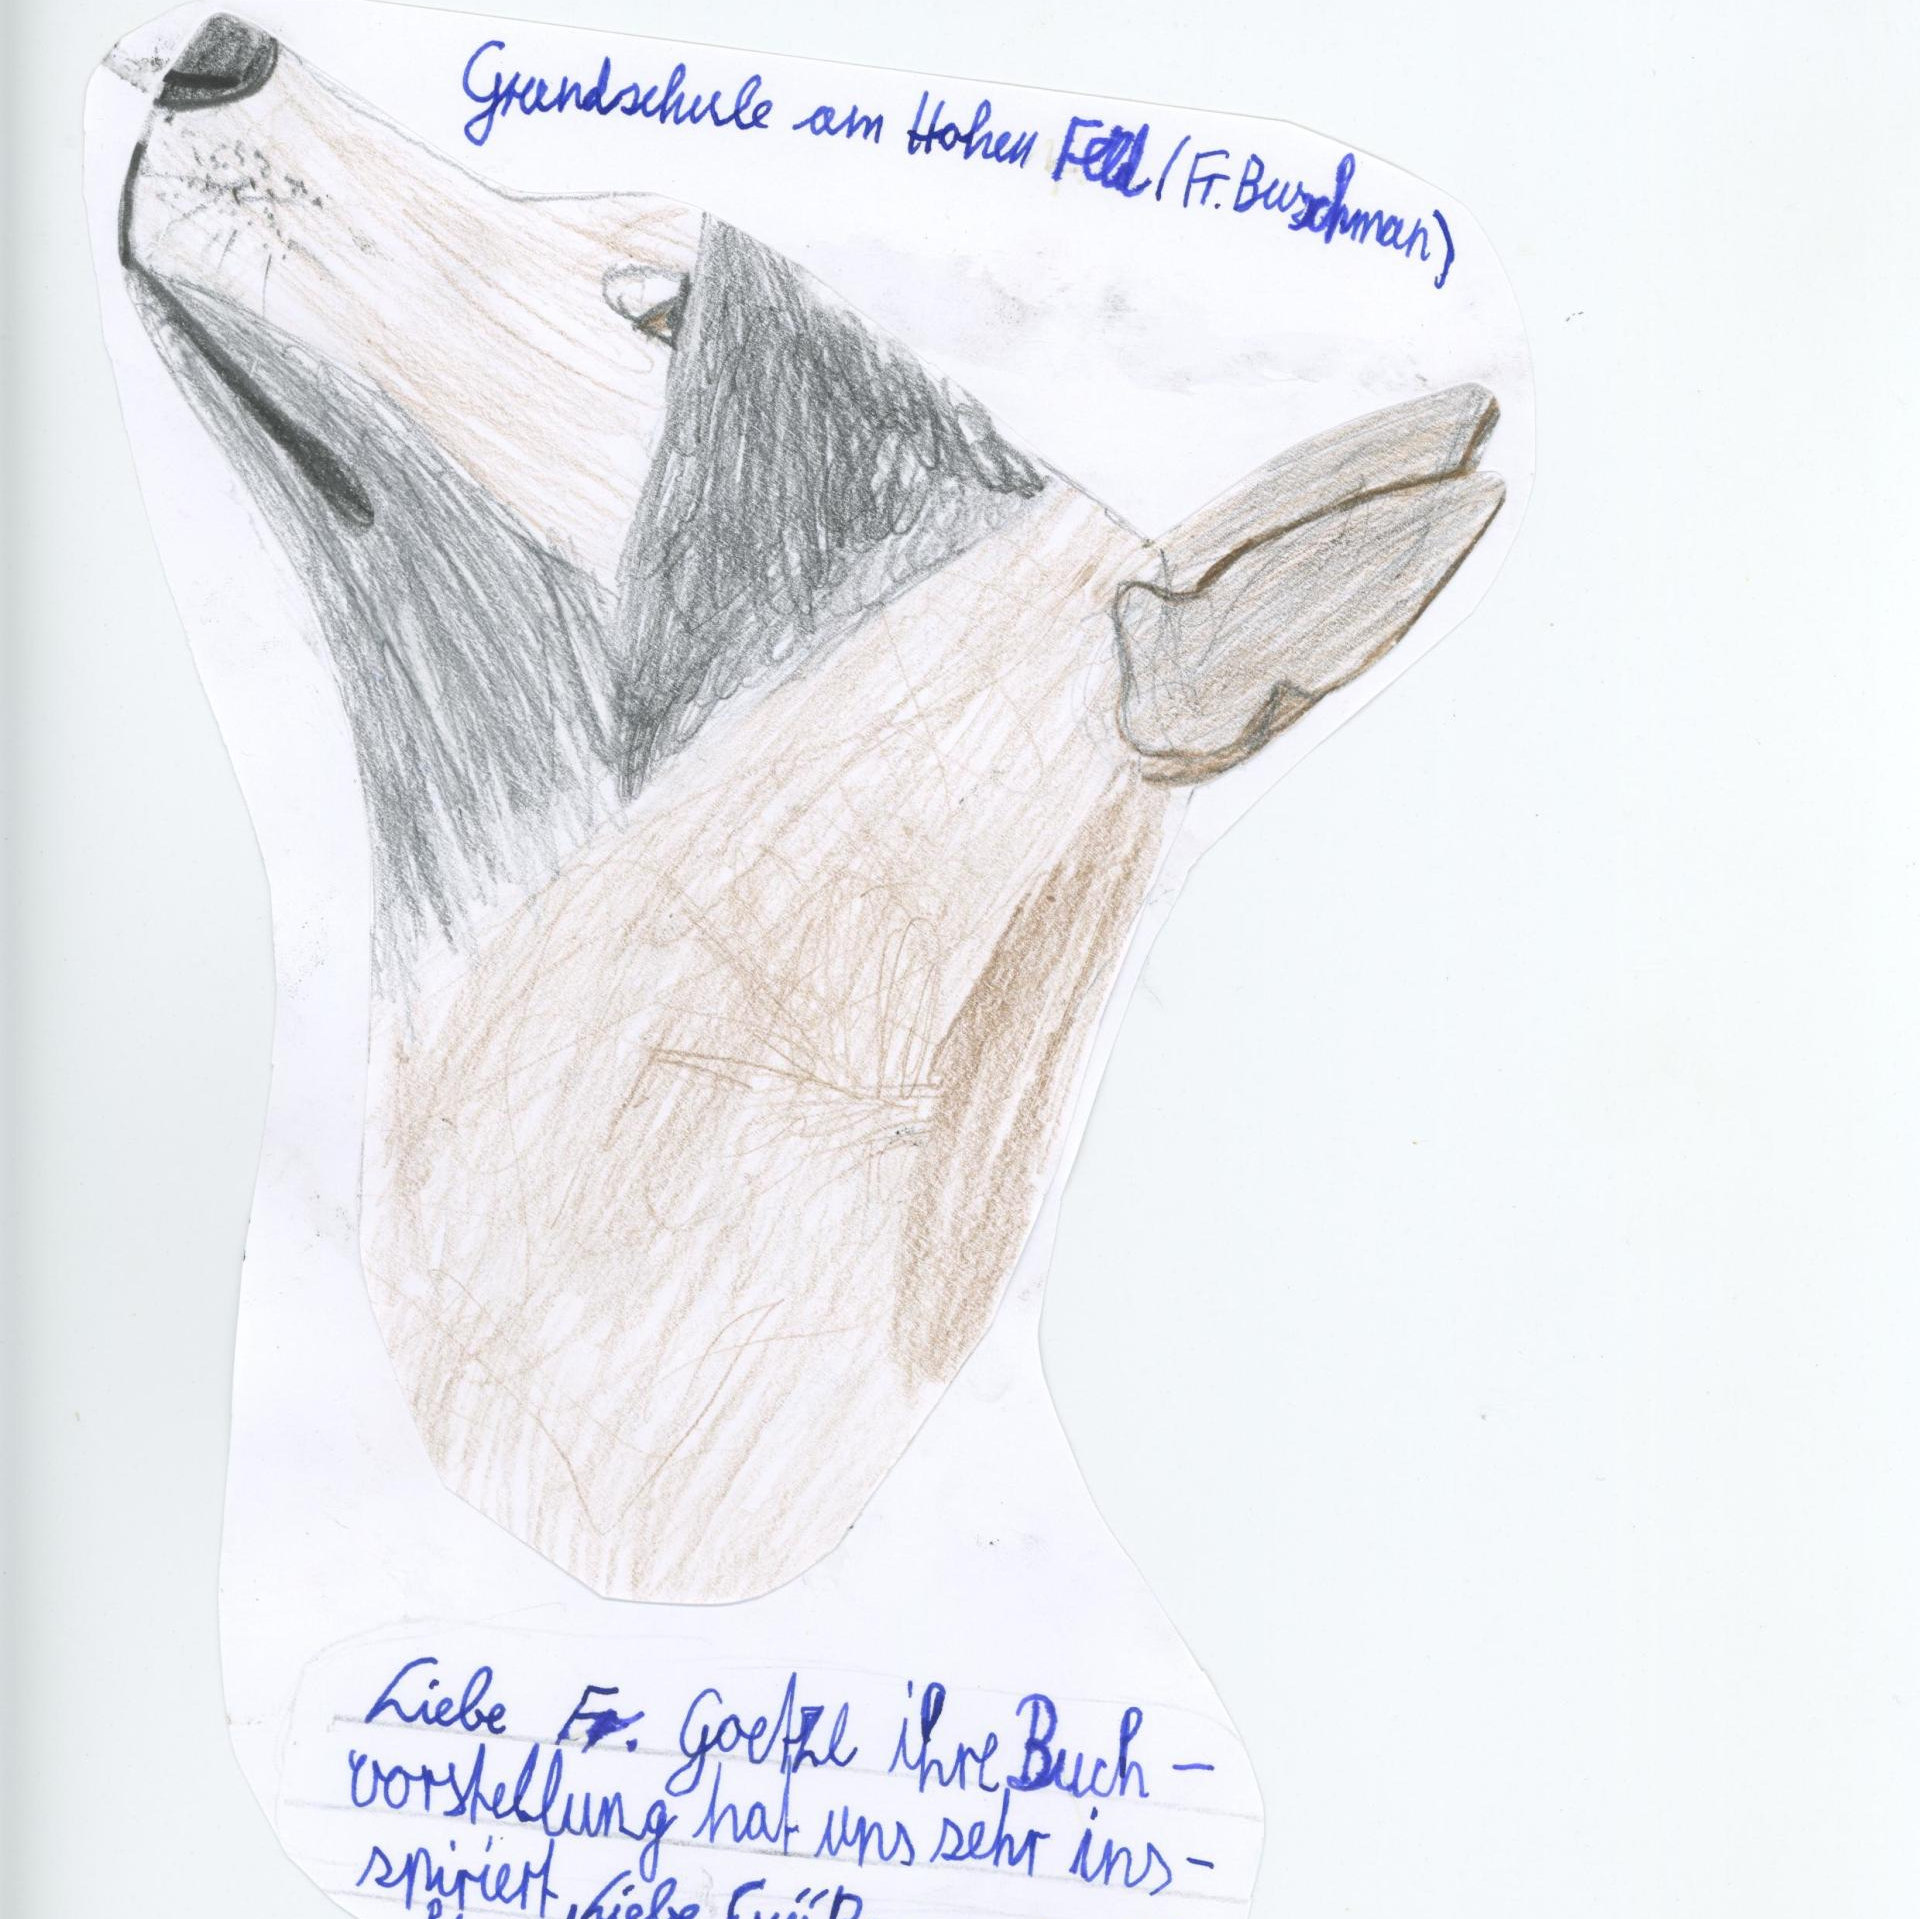 Grundschule am Hohen Feld (Fr. Buschman)
Liebe Fr. Goetzl ihre Buch-
vorstellung hat uns sehr ins-
spiriert. Liebe Grüß